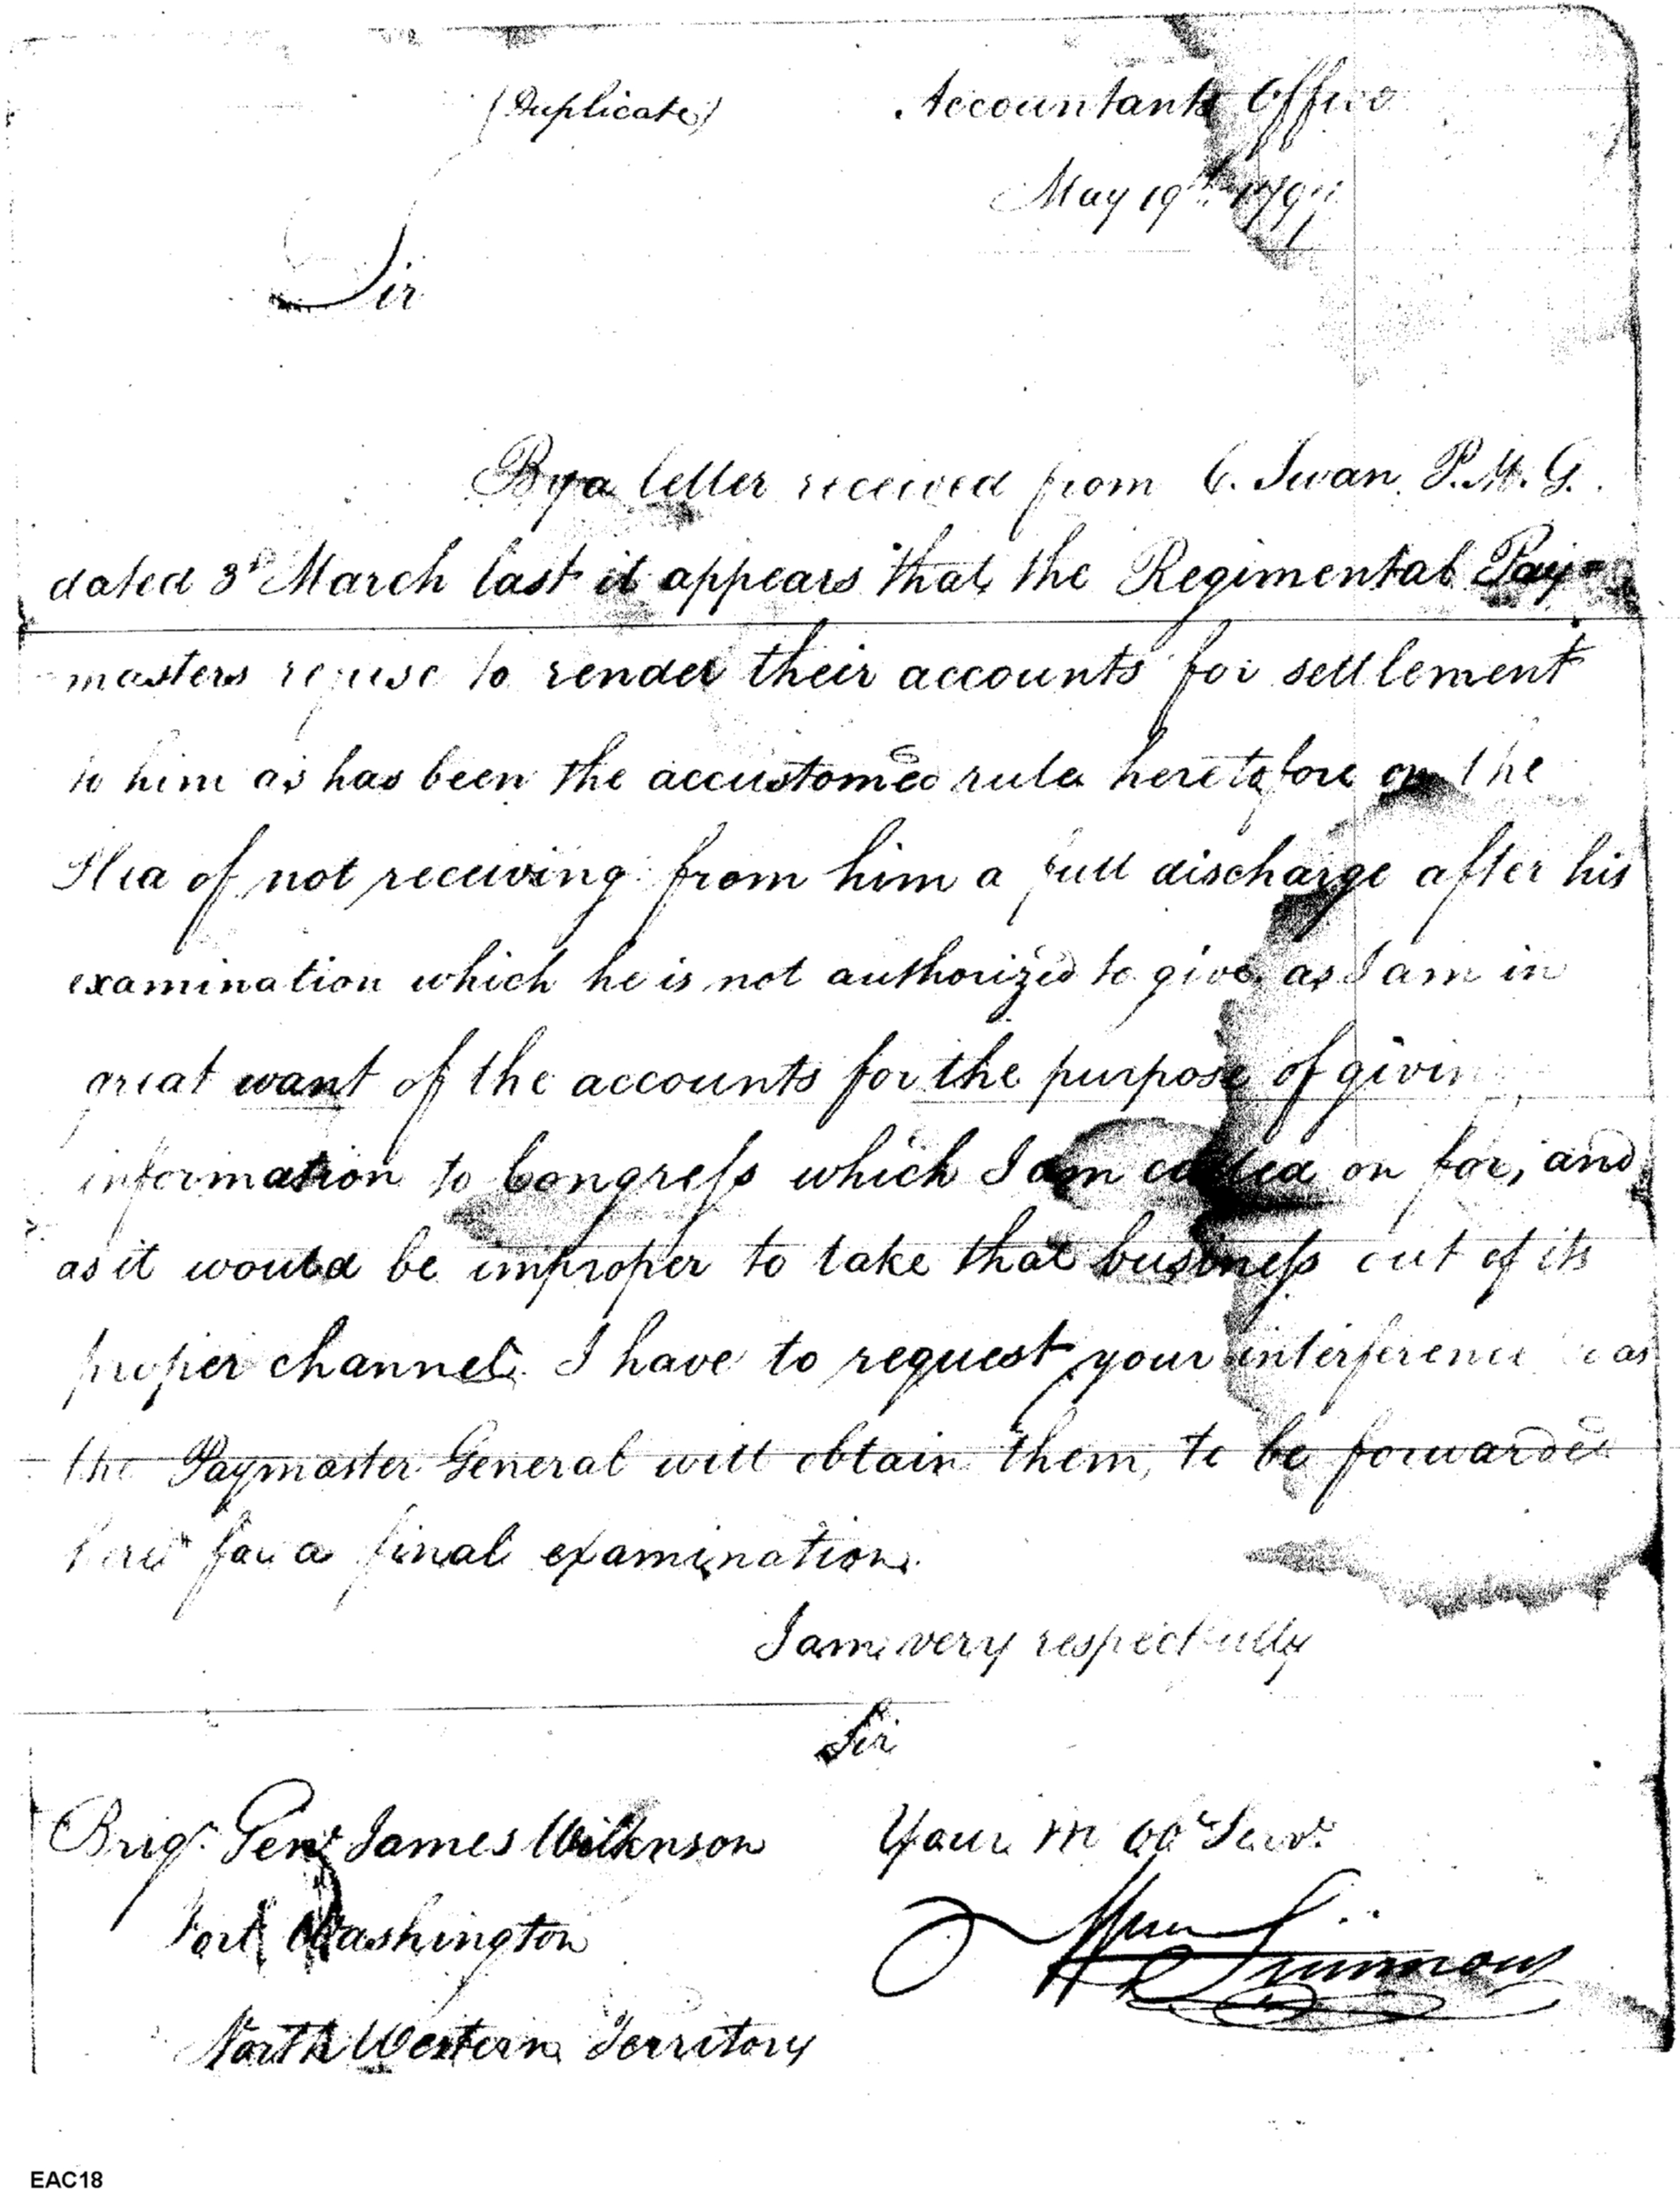 (Duplicate) Accountants Office
May 19th 179
Sir
By a letter received from C. Swan P.M.G.
dated 3d March last it appears that the Regimental Pay=
masters refuse to render their accounts for settlement
to him as has been the accustomed rule heretofore on the
Plea of not receiving from him a full discharge after his
examination which he is not authorized to give, as I am in
great want of the accounts for the purpose of giving
information to Congress which I am called on for, and
as it would be improper to take that business out of its
proper channel. I have to request your interference as
the Paymaster General will obtain them, to be forwarded
here for a final examination.
I am very respectfully
Sir
Brigr. Genl. James Wilknson Your m Obt Servt.
Fort Washington Wm Simmons
North Western Territory
EAC18